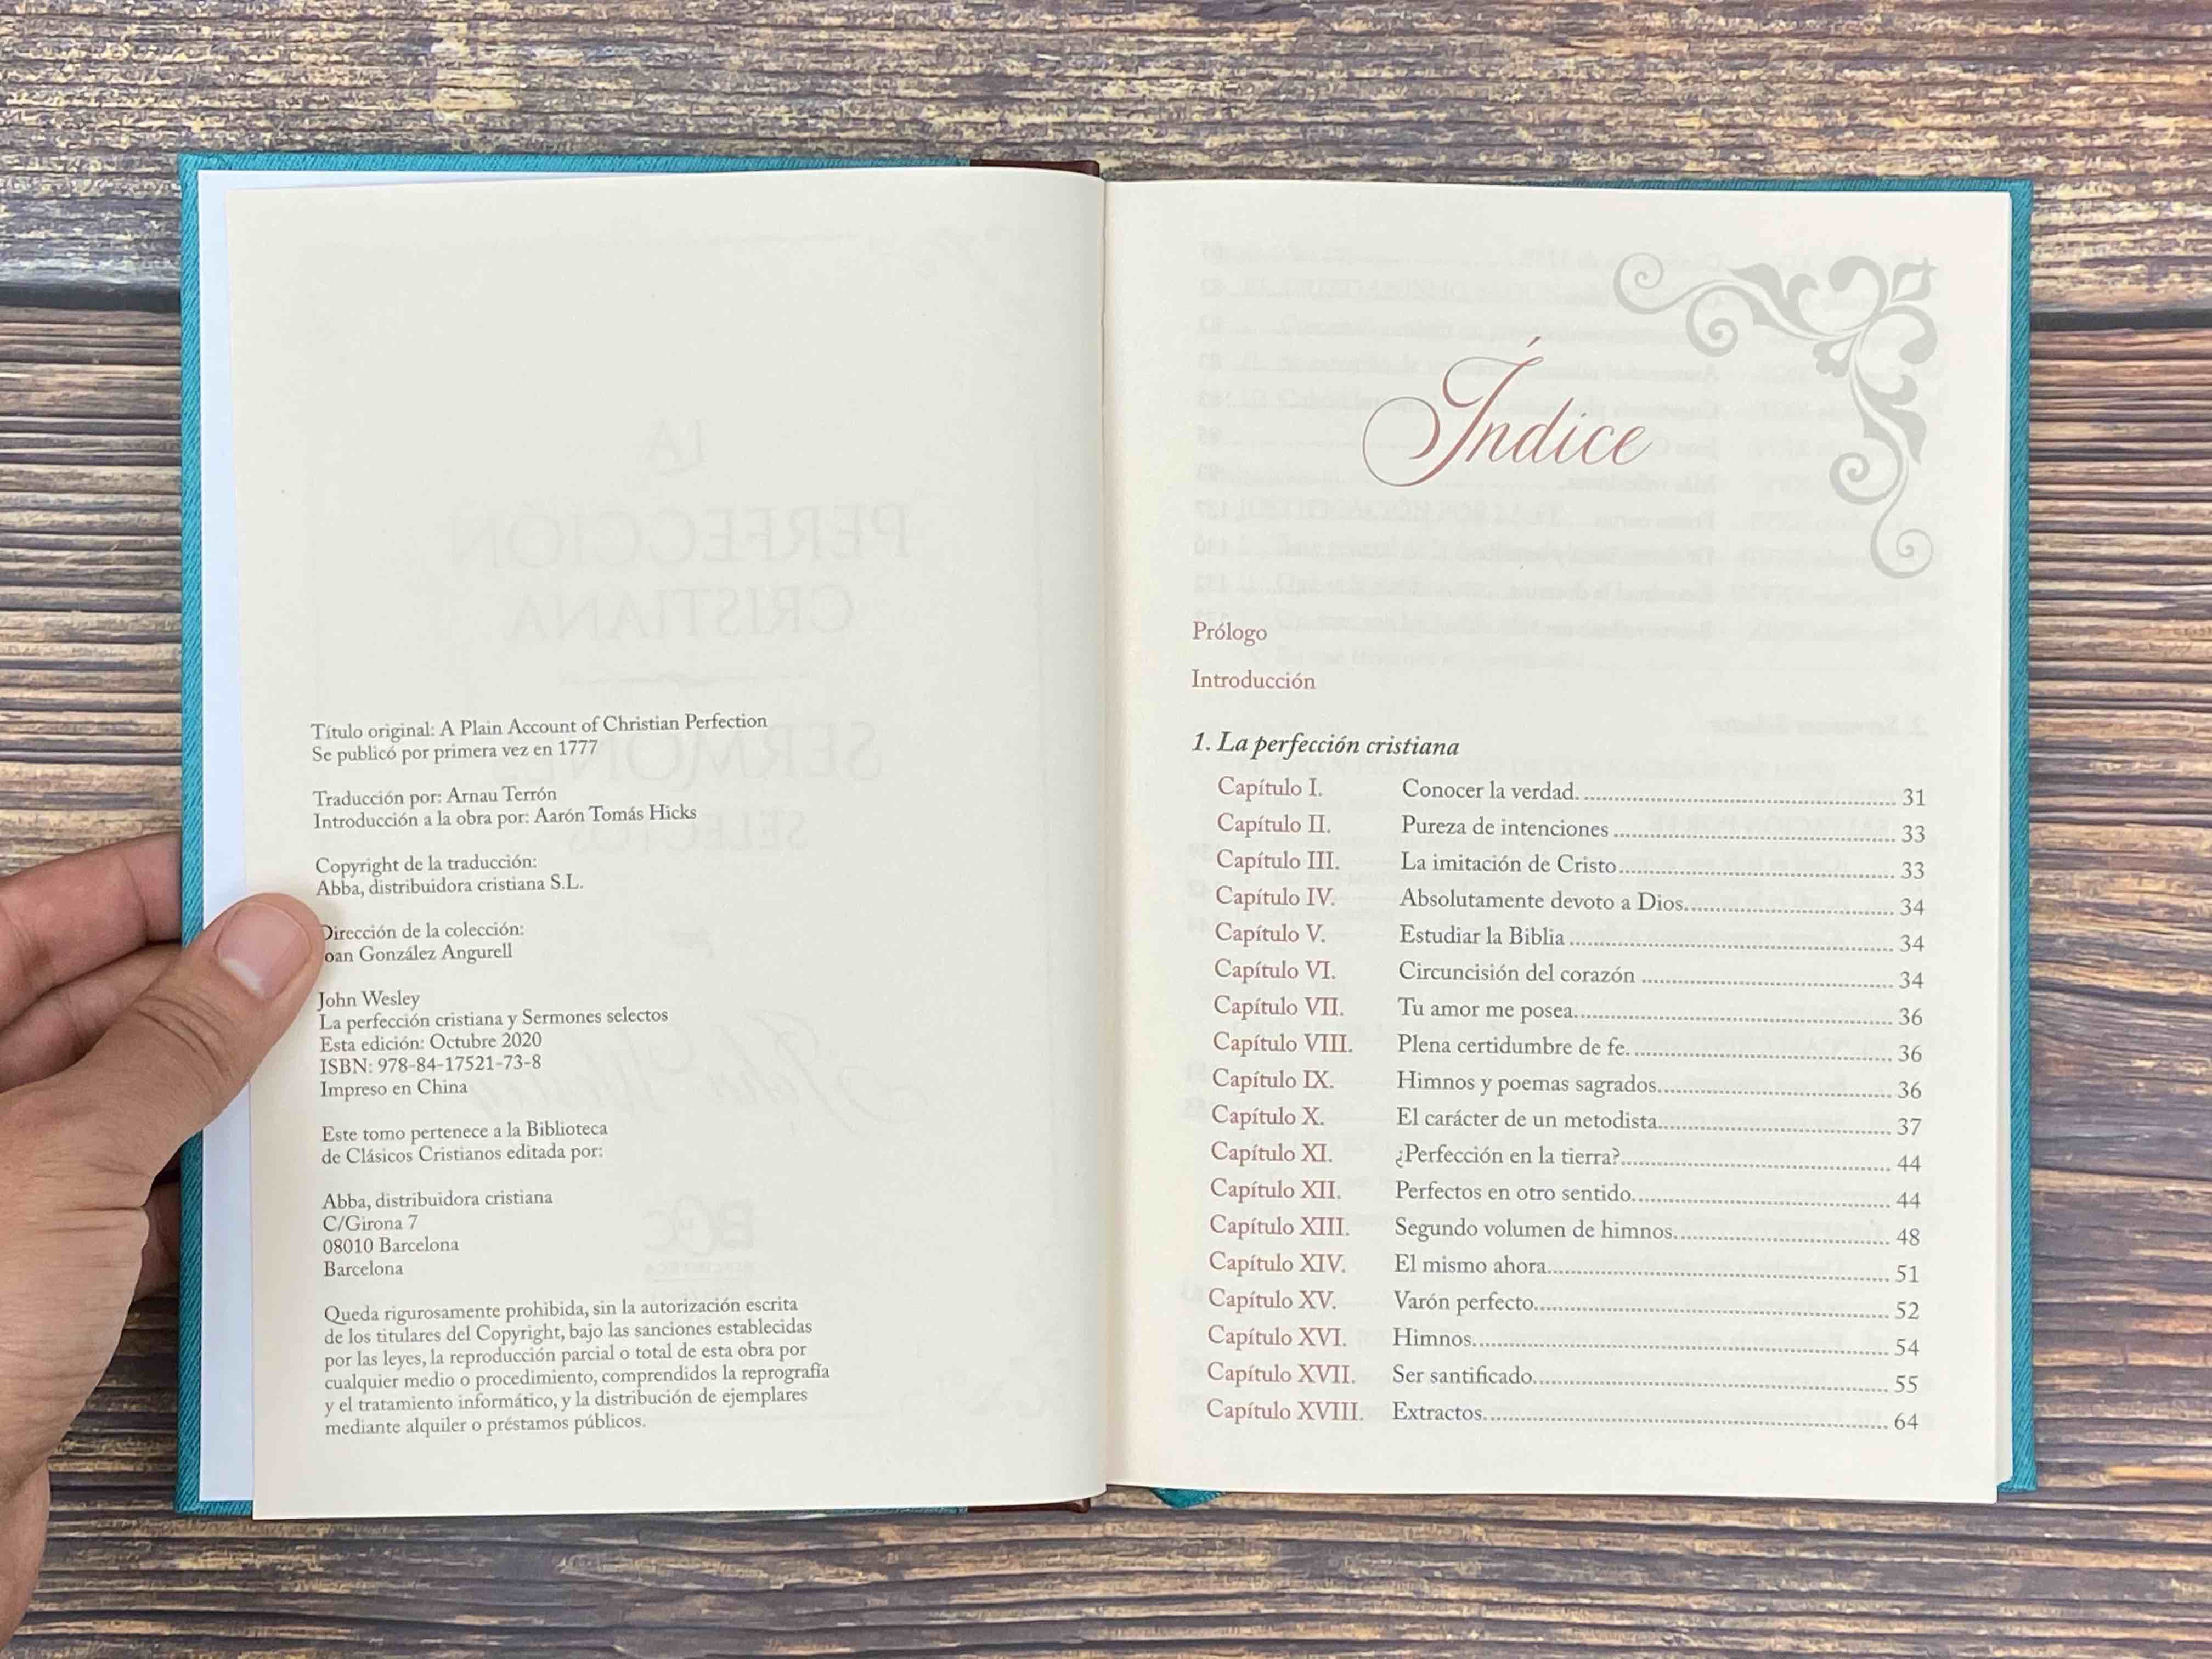 Título original: A Plain Account of Christian Perfection
Se publicó por primera vez en 1777
Traducción por: Arnau Terrón
Introducción a la obra por: Aarón Tomás Hicks
Copyright de la traducción:
Abba, distribuidora cristiana S.L.
Dirección de la colección:
oan González Angurell
John Wesley
La perfección cristiana y Sermones selectos
Esta edición: Octubre 2020
ISBN: 978-84-17521-73-8
Impreso en China
Este tomo pertenece a la Biblioteca
de Clásicos Cristianos editada por:
Abba, distribuidora cristiana
C/Girona 7
08010 Barcelona
Barcelona
Queda rigurosamente prohibida, sin la autorización escrita
de los titulares del Copyright, bajo las sanciones establecidas
por las leyes, la reproducción parcial o total de esta obra por
cualquier medio o procedimiento, comprendidos la reprografía
y el tratamiento informático, y la distribución de ejemplares
mediante alquiler o préstamos públicos.
Índice
Prólogo
Introducción
1. La perfección cristiana
Capítulo I. Conocer la verdad. 31
Capítulo II. Pureza de intenciones 33
Capítulo III. La imitación de Cristo 33
Capítulo IV. Absolutamente devoto a Dios 34
Capítulo V. Estudiar la Biblia 34
Capítulo VI. Circuncisión del corazón 34
Capítulo VII. Tu amor me posea 36
Capítulo VIII. Plena certidumbre de fe. 36
Capítulo IX. Himnos y poemas sagrados 36
Capítulo X. El carácter de un metodista 37
Capítulo XI. ¿Perfección en la tierra? 44
Capítulo XII. Perfectos en otro sentido 44
Capítulo XIII. Segundo volumen de himnos 48
Capítulo XIV. El mismo ahora 51
Capítulo XV. Varón perfecto 52
Capítulo XVI. Himnos 54
Capítulo XVII. Ser santificado 55
Capítulo XVIII. Extractos 64